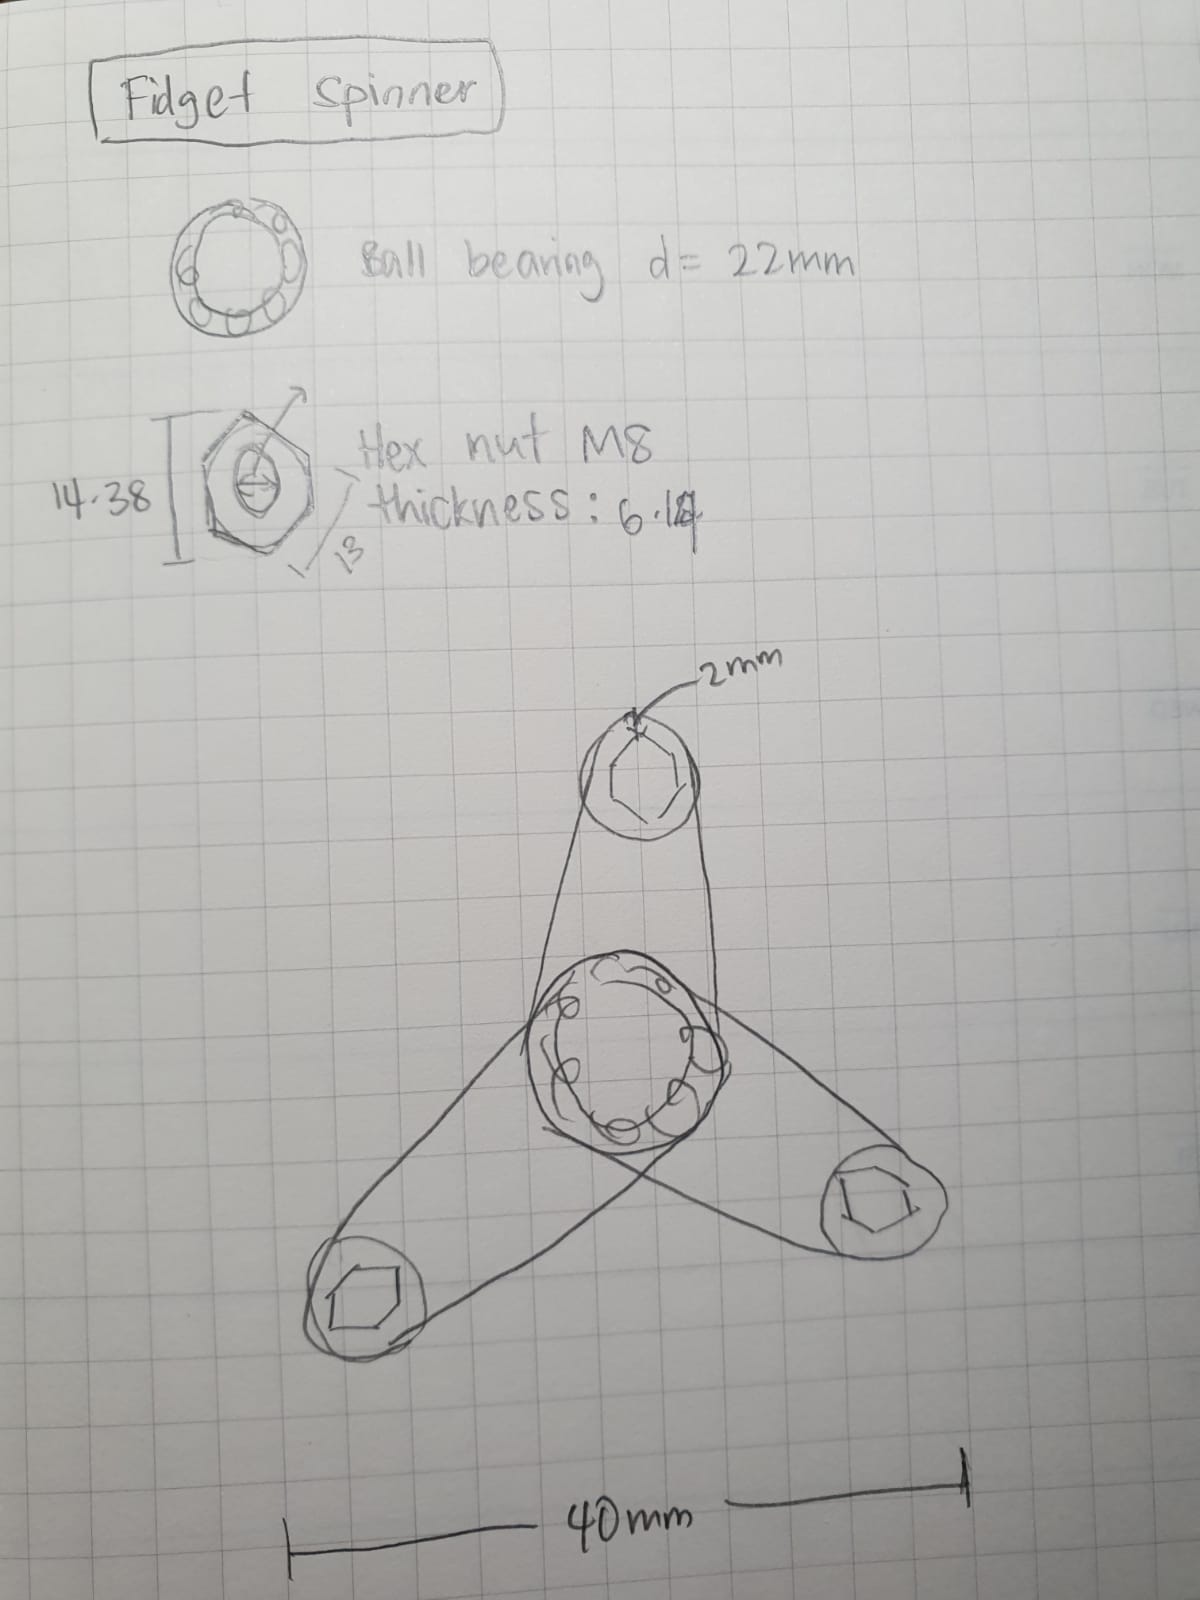 Fidget Spinner
Ball bearing d= 22mm
Hex nut M8
14.38
thickness:
13
2mm
40mm